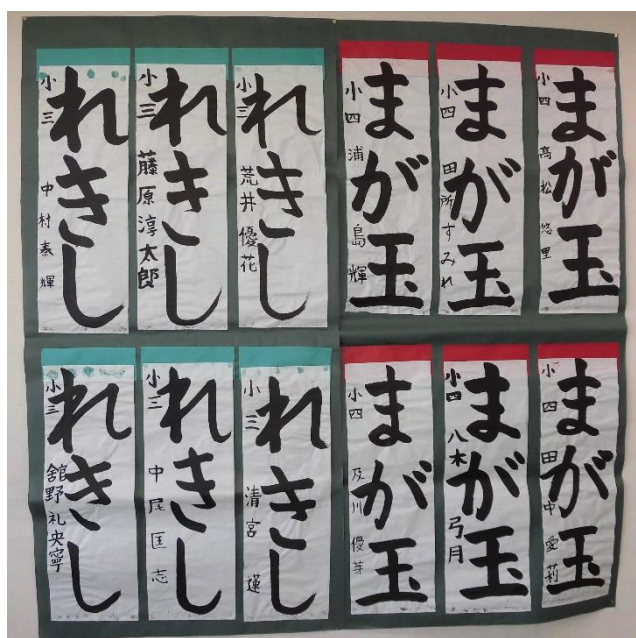 まが玉
小四 髙松悠里
まが玉
小四 田所すみれ
まが玉
小四 浦島輝
れきし
小三 荒井優花
れきし
小三 藤原淳太郎
れきし
小三 中村泰輝
まが玉
小四 田中愛莉
まが玉
小四 八木弓月
まが玉
小四 及川優芽
れきし
小三 清宮蓮
れきし
小三 中尾匡志
れきし
小三 舘野礼央寧